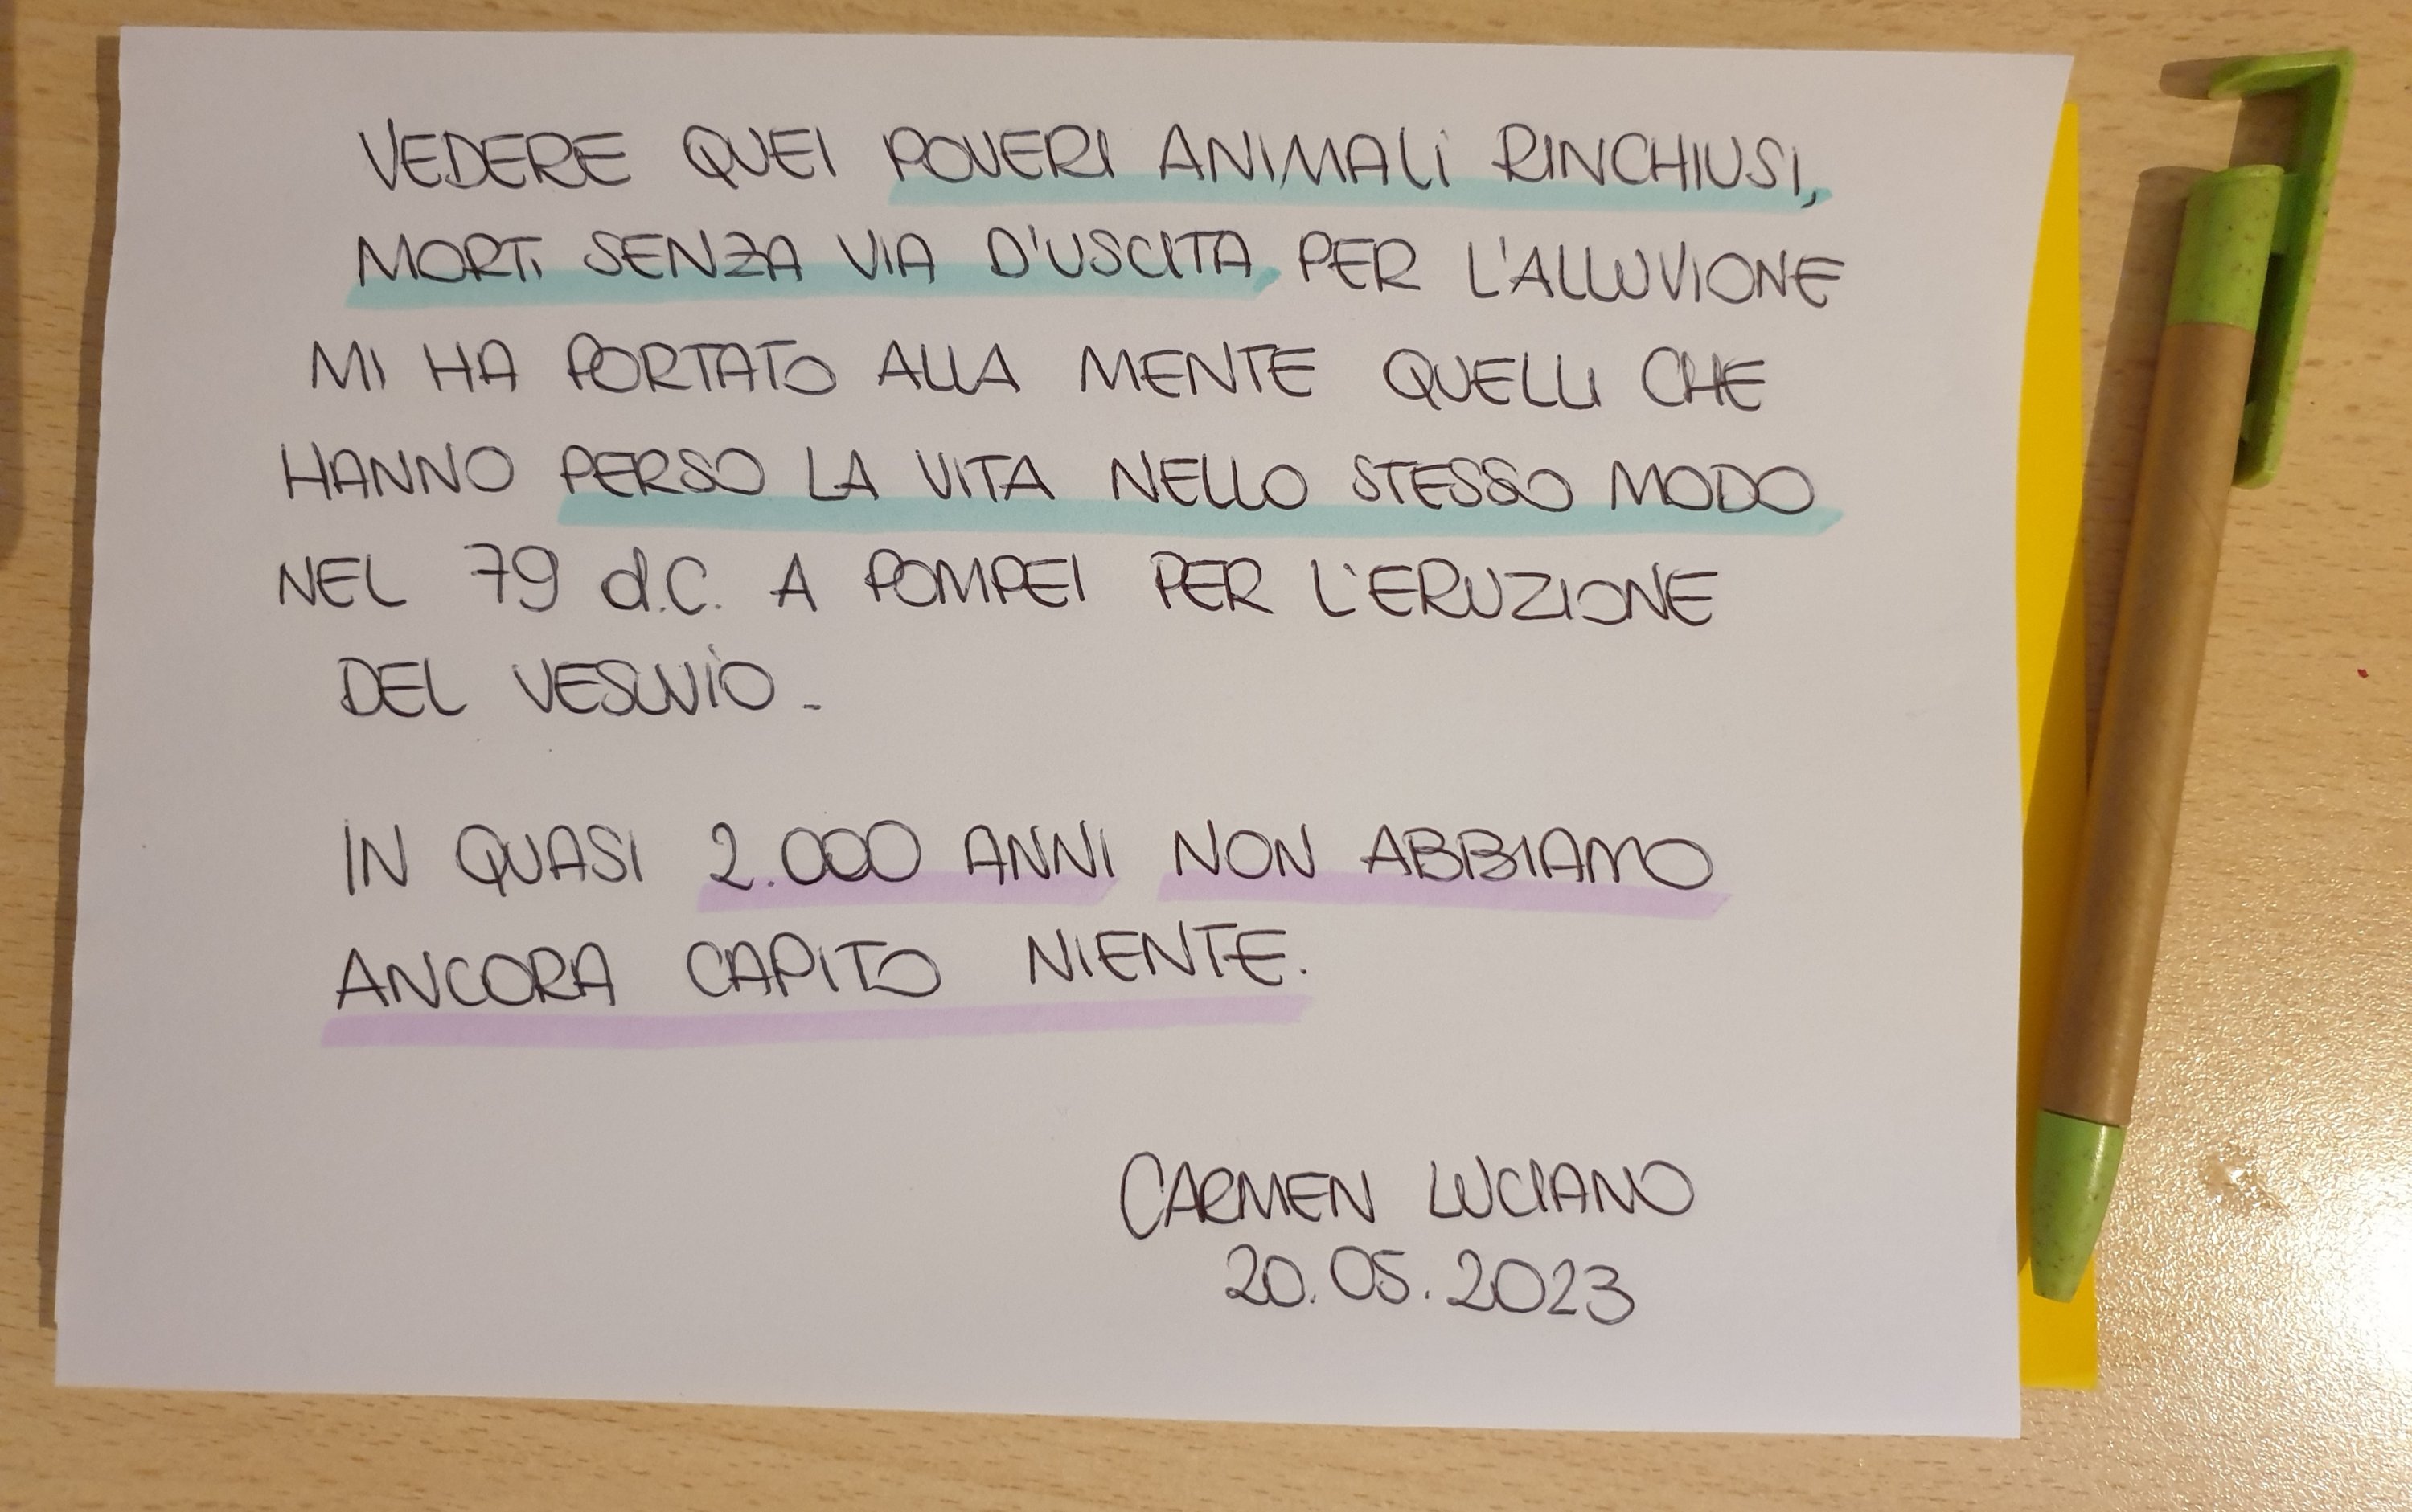 VEDERE QUEI POVERI ANIMALI RINCHIUSI,
MORTI SENZA VIA D'USCITA PER L'ALLUVIONE
MI HA PORTATO ALLA MENTE QUELLI CHE
HANNO PERSO LA VITA NELLO STESSO MODO
NEL 79 d.C. A POMPEI PER L'ERUZIONE
DEL VESUVIO.
IN QUASI 2.000 ANNI NON ABBIAMO
ANCORA CAPITO NIENTE.
CARMEN LUCIANO
20.05.2023